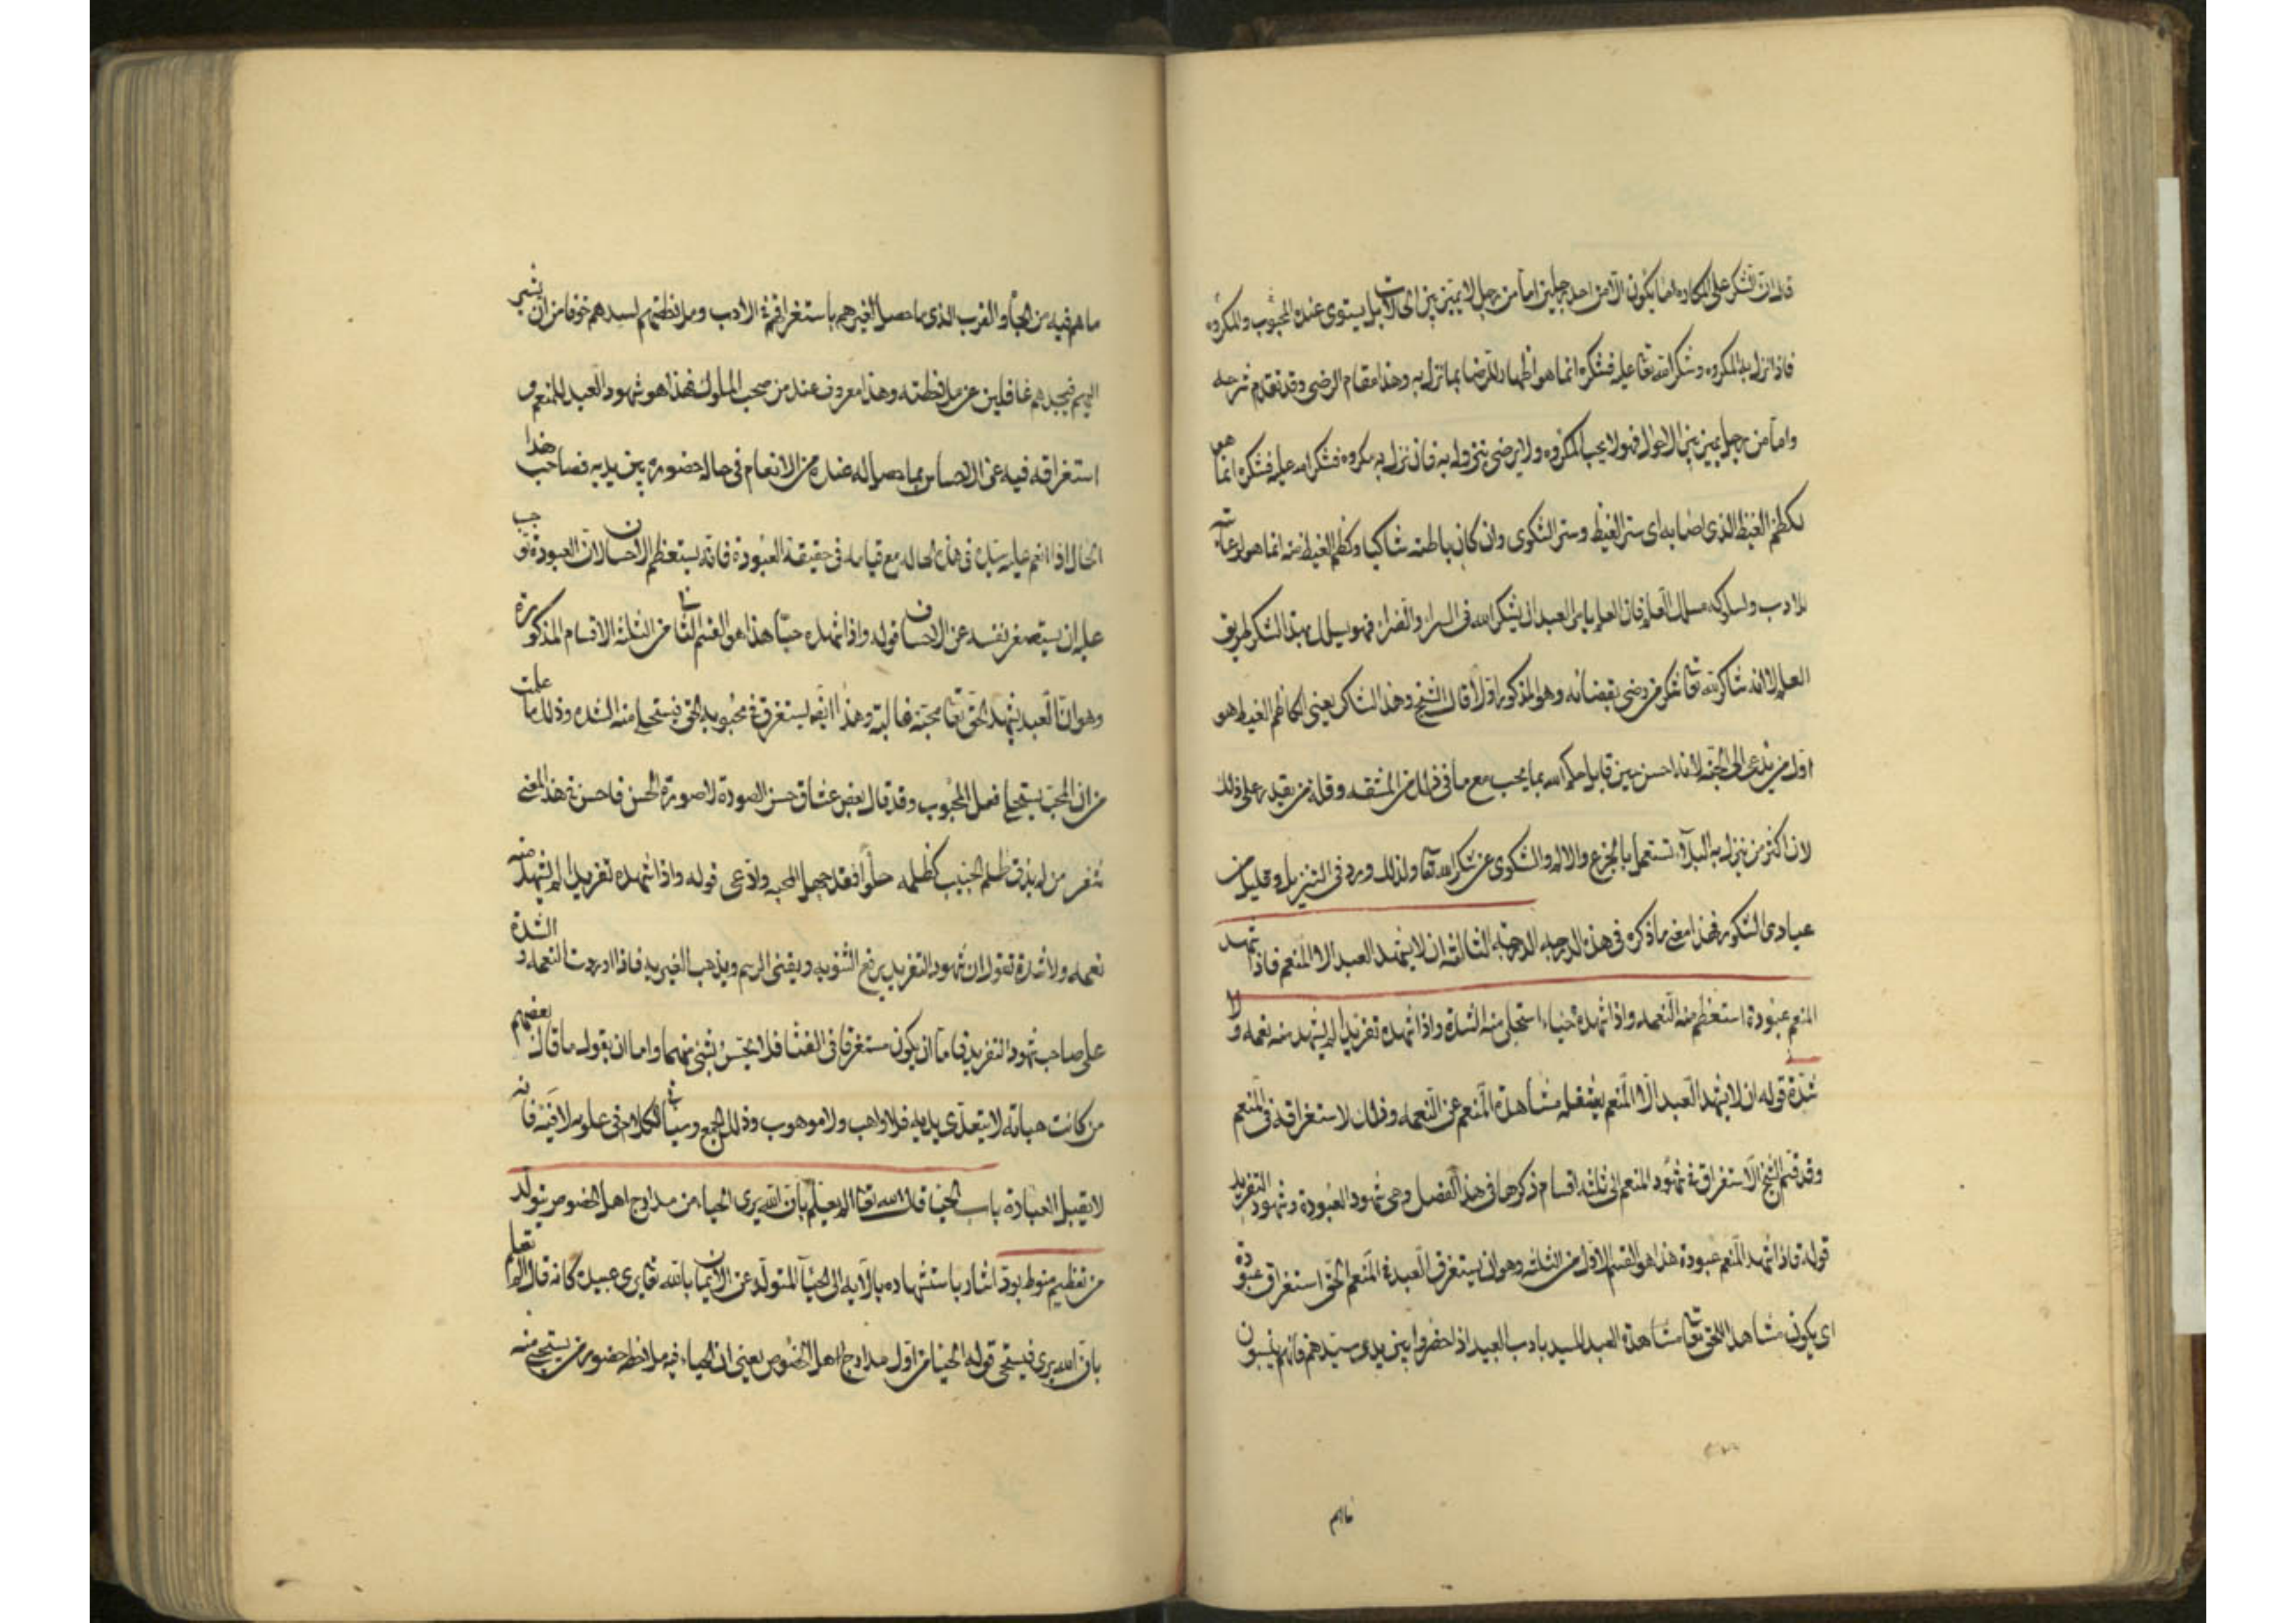 قلت الشكر على المكاره اما يكون الا من احد رجلين اما من رجل لا يميز بين الحالات بل يستوى عنده المحبوب والمكروه
فاذا نزل به المكروه وشكر الله تعا عليه فشكره انما هو اظهار للرضا بما نزل به وهذا مقام الرضى وقد تقدم شرحه
واما من رجل يميز بين الاحوال فهو لا يحب المكروه ولا يرضى بنزوله به فان نزل به مكروه فشكر الله عليه فشكره انما هو
لكظم الغيظ الذى اصابه اى ستر الغيظ وستر الشكوى وان كان باطنه شاكيا وكظم الغيظ منه انما هو لرعايته
للادب ولسلوكه مسلك العلم فان العلم يامر العبد ان يشكر الله فى السراء والضراء فهو يسلك بهذا الشكر طريق
العلم لا انه شاكر لله تعا شكر من رضى بقضائه وهو المذكور اولا قال الشيخ وهذا الشاكى يعنى الكاظم الغيظ هو
اول من يدعى الى الجنة لانه احسن حين قابل الله بما يحب مع ما فى ذلك من المشقه وقل من يقدر على ذلك
لان اكثر من ينزل به البلاء تستعمل بالجزع والاله والشكوى عن شكر الله تعا ولذلك ورد فى التنزيل وقليل من
عبادى الشكور فهذا معنى ما ذكره فى هذه الدرجه الدرجة الثالثة ان لا يشهد العبد الا المنعم فاذا شهد
المنعم عبودة استعظم منه النعمه واذا شهده حبا، استحلى منه الشدة واذا شهده تفريدا لم يشهد منه نعمه ولا
شدة قوله ان لا يشهد العبد الا المنعم يشغله مشاهدة المنعم عن النعمه وذلك لاستغراقه فى المنعم
وقد قسم الشيخ الاستغراق فى شهود المنعم الى ثلثه اقسام ذكرها فى هذا الفصل وهى شهود العبودة وشهود التفريد
قوله فاذا شهد المنعم عبودة هذا هو القسم الاول من الثلثه وهو ان يستغرق العبد فى المنعم الحق استغراق عبودة
اى يكون مشاهدا للحق تعا مشاهدة العبد للسيد بادب العبيد اذا حضروا بين يدى سيدهم فانهم ينسون
ماهم
ما هم فيه من الجاه والقرب الذى ما حصل لغيرهم باستغراقهم فى الادب وملاحظتهم لسيدهم خوفا من ان يشير
اليهم فيجدهم غافلين عن ملاحظته وهذا معروف عند من صحب الملوك فهذا هو شهود العبد للمنعم و
استغراقه فيه عن الاحساس بما حصل له عنده من الانعام فى حال حضوره بين يديه فصاحب هذا
الحال اذا انعم عليه سيده فى هذه الحاله مع قيامه فى حقيقة العبودة فانه يستعظم الاحسان لان العبودة توجب
عليه ان يستصغر نفسه عن الاحسان قوله واذا شهده حبا هذا هو القسم الثانى من الثلثة الاقسام المذكورة
وهو ان العبد يشهد الحق تعا محبة غالبة وهذا ايضا يستغرق فى محبوبه الحق فيستحلى منه الشده وذلك ما علمت
من ان المحب يستحلى فعل المحبوب وقد قال بعض عشاق حسن الصورة لا صورة الحسن فاحسن فى هذا المعنى
شعر من لم يذق ظلم الحبيب كظلمه حلوا فقد جهل المحبه وادعى قوله واذا شهده تفريدا لم يشهد منه
نعمه ولا شدة تقول ان شهود التفريد يرفع الثنويه ويفنى الرسم ويذهب الغيريه فاذا اوردت النعمه والشدة
على صاحب شهود التفريد فاما ان يكون مستغرقا فى الفنا فلا يحسن بشئ منهما واما ان يقول ما قال بعضهم
من كانت هباته لا تتعدى يديه فلا واهب ولا موهوب وذلك الجمع وسياتى الكلام فى علومه لا فيه فانه
لا يقبل العبارة باب الحيا قال الله تعا الم يعلم بان الله يرى الحياء من مدارج اهل الخصوص يتولد
من تعظيم منوط بود اشار باستشهاده بالايه الى الحيا المتولد عن الايمان بالله تعا يرى عبيده كانه قال الم تعلم
بان الله يرى فيستحى قوله الحيا من اول مدارج اهل الخصوص يعنى ان الحياء فيه ملاحظه حضور من يستحى منه